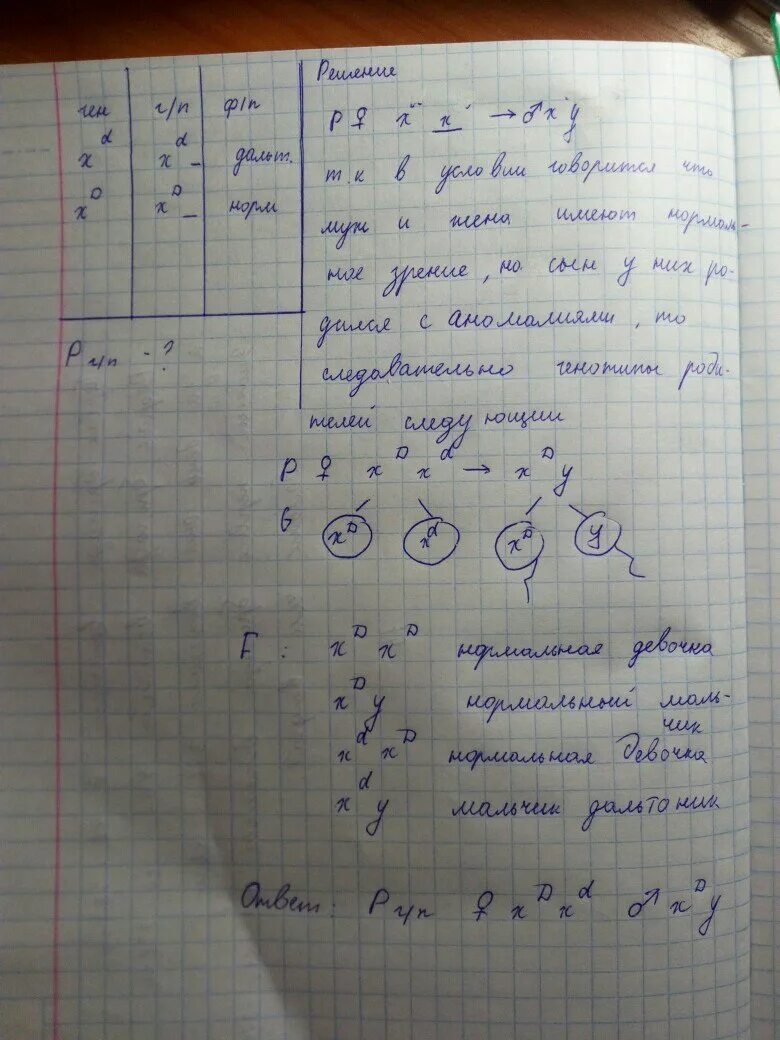 ген г/п ф/п
x^d x^d_ дальт.
x^D x^D_ норм
P г/п - ?
Решение
P ♀ x¨ x˙ → ♂ x˙ y
т.к в условии говорится что
муж и жена имеют нормаль-
ное зрение, но сын у них ро-
дился с аномалиями, то
следовательно генотипы роди-
телей следующии
P ♀ x^D x^d → x^D y
G x^D x^d x^D y
F : x^D x^D нормальная девочка
x^D y нормальный маль-
чик
x^d x^D нормальная девочка
x^d y мальчик дальтоник
Ответ: P г/п ♀ x^D x^d ♂ x^D y